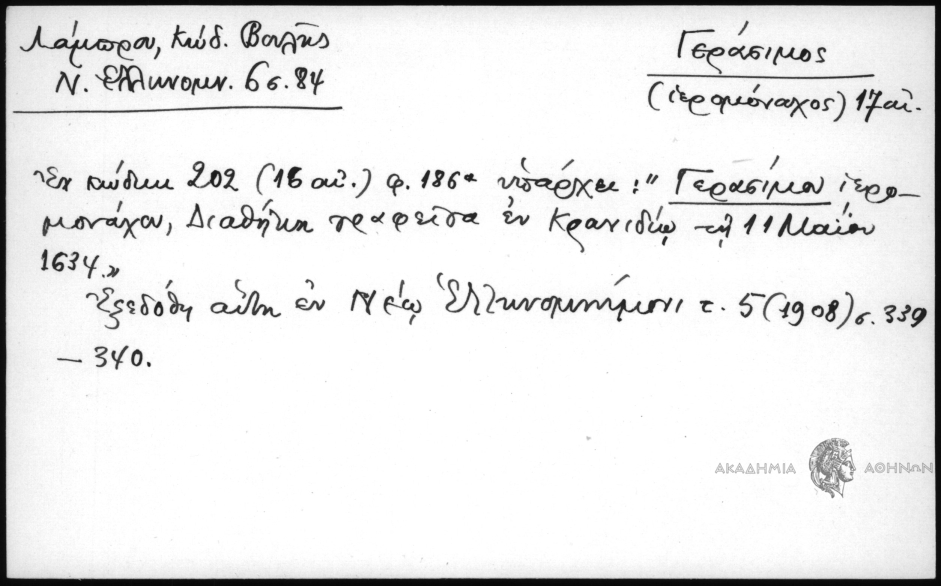 Λάμπρου, Κώδ. Βουλῆς
Ν. Ἑλληνομν. 6 σ. 84
Γεράσιμος
(ἱερομόναχος) 17 αἰ.
Ἐν κώδικι 202 (16 αἰ.) φ. 186α ὑπάρχει: "Γερασίμου ἱερο-
μονάχου, Διαθήκη γραφεῖσα ἐν Κρανιδίῳ τῇ 11 Μαΐου
1634."
Ἐξεδόθη αὕτη ἐν Νέῳ Ἑλληνομνήμονι τ. 5 (1908) σ. 339
— 340.
ΑΚΑΔΗΜΙΑ ΑΘΗΝΩΝ